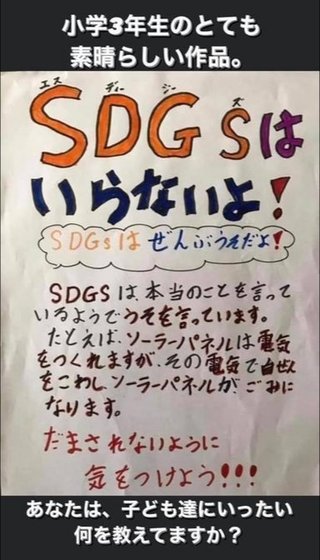 小学3年生のとても
素晴らしい作品。
エス ディー ジー ズ
SDGsは
いらないよ!
SDGsはぜんぶうそだよ!
SDGSは、本当のことを言って
いるようでうそを言っています。
たとえば、ソーラーパネルは電気
をつくれますが、その電気で自せん
をこわし、ソーラーパネルが、ごみに
なります。
だまされないように
気をつけよう!!!
あなたは、子ども達にいったい
何を教えてますか?